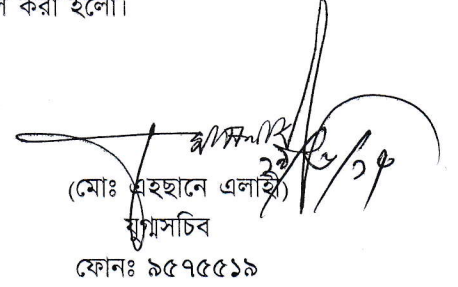 করা হলো।
(মোঃ এহছানে এলাহী)
যুগ্মসচিব
ফোনঃ ৯৫৭৫৫১৯